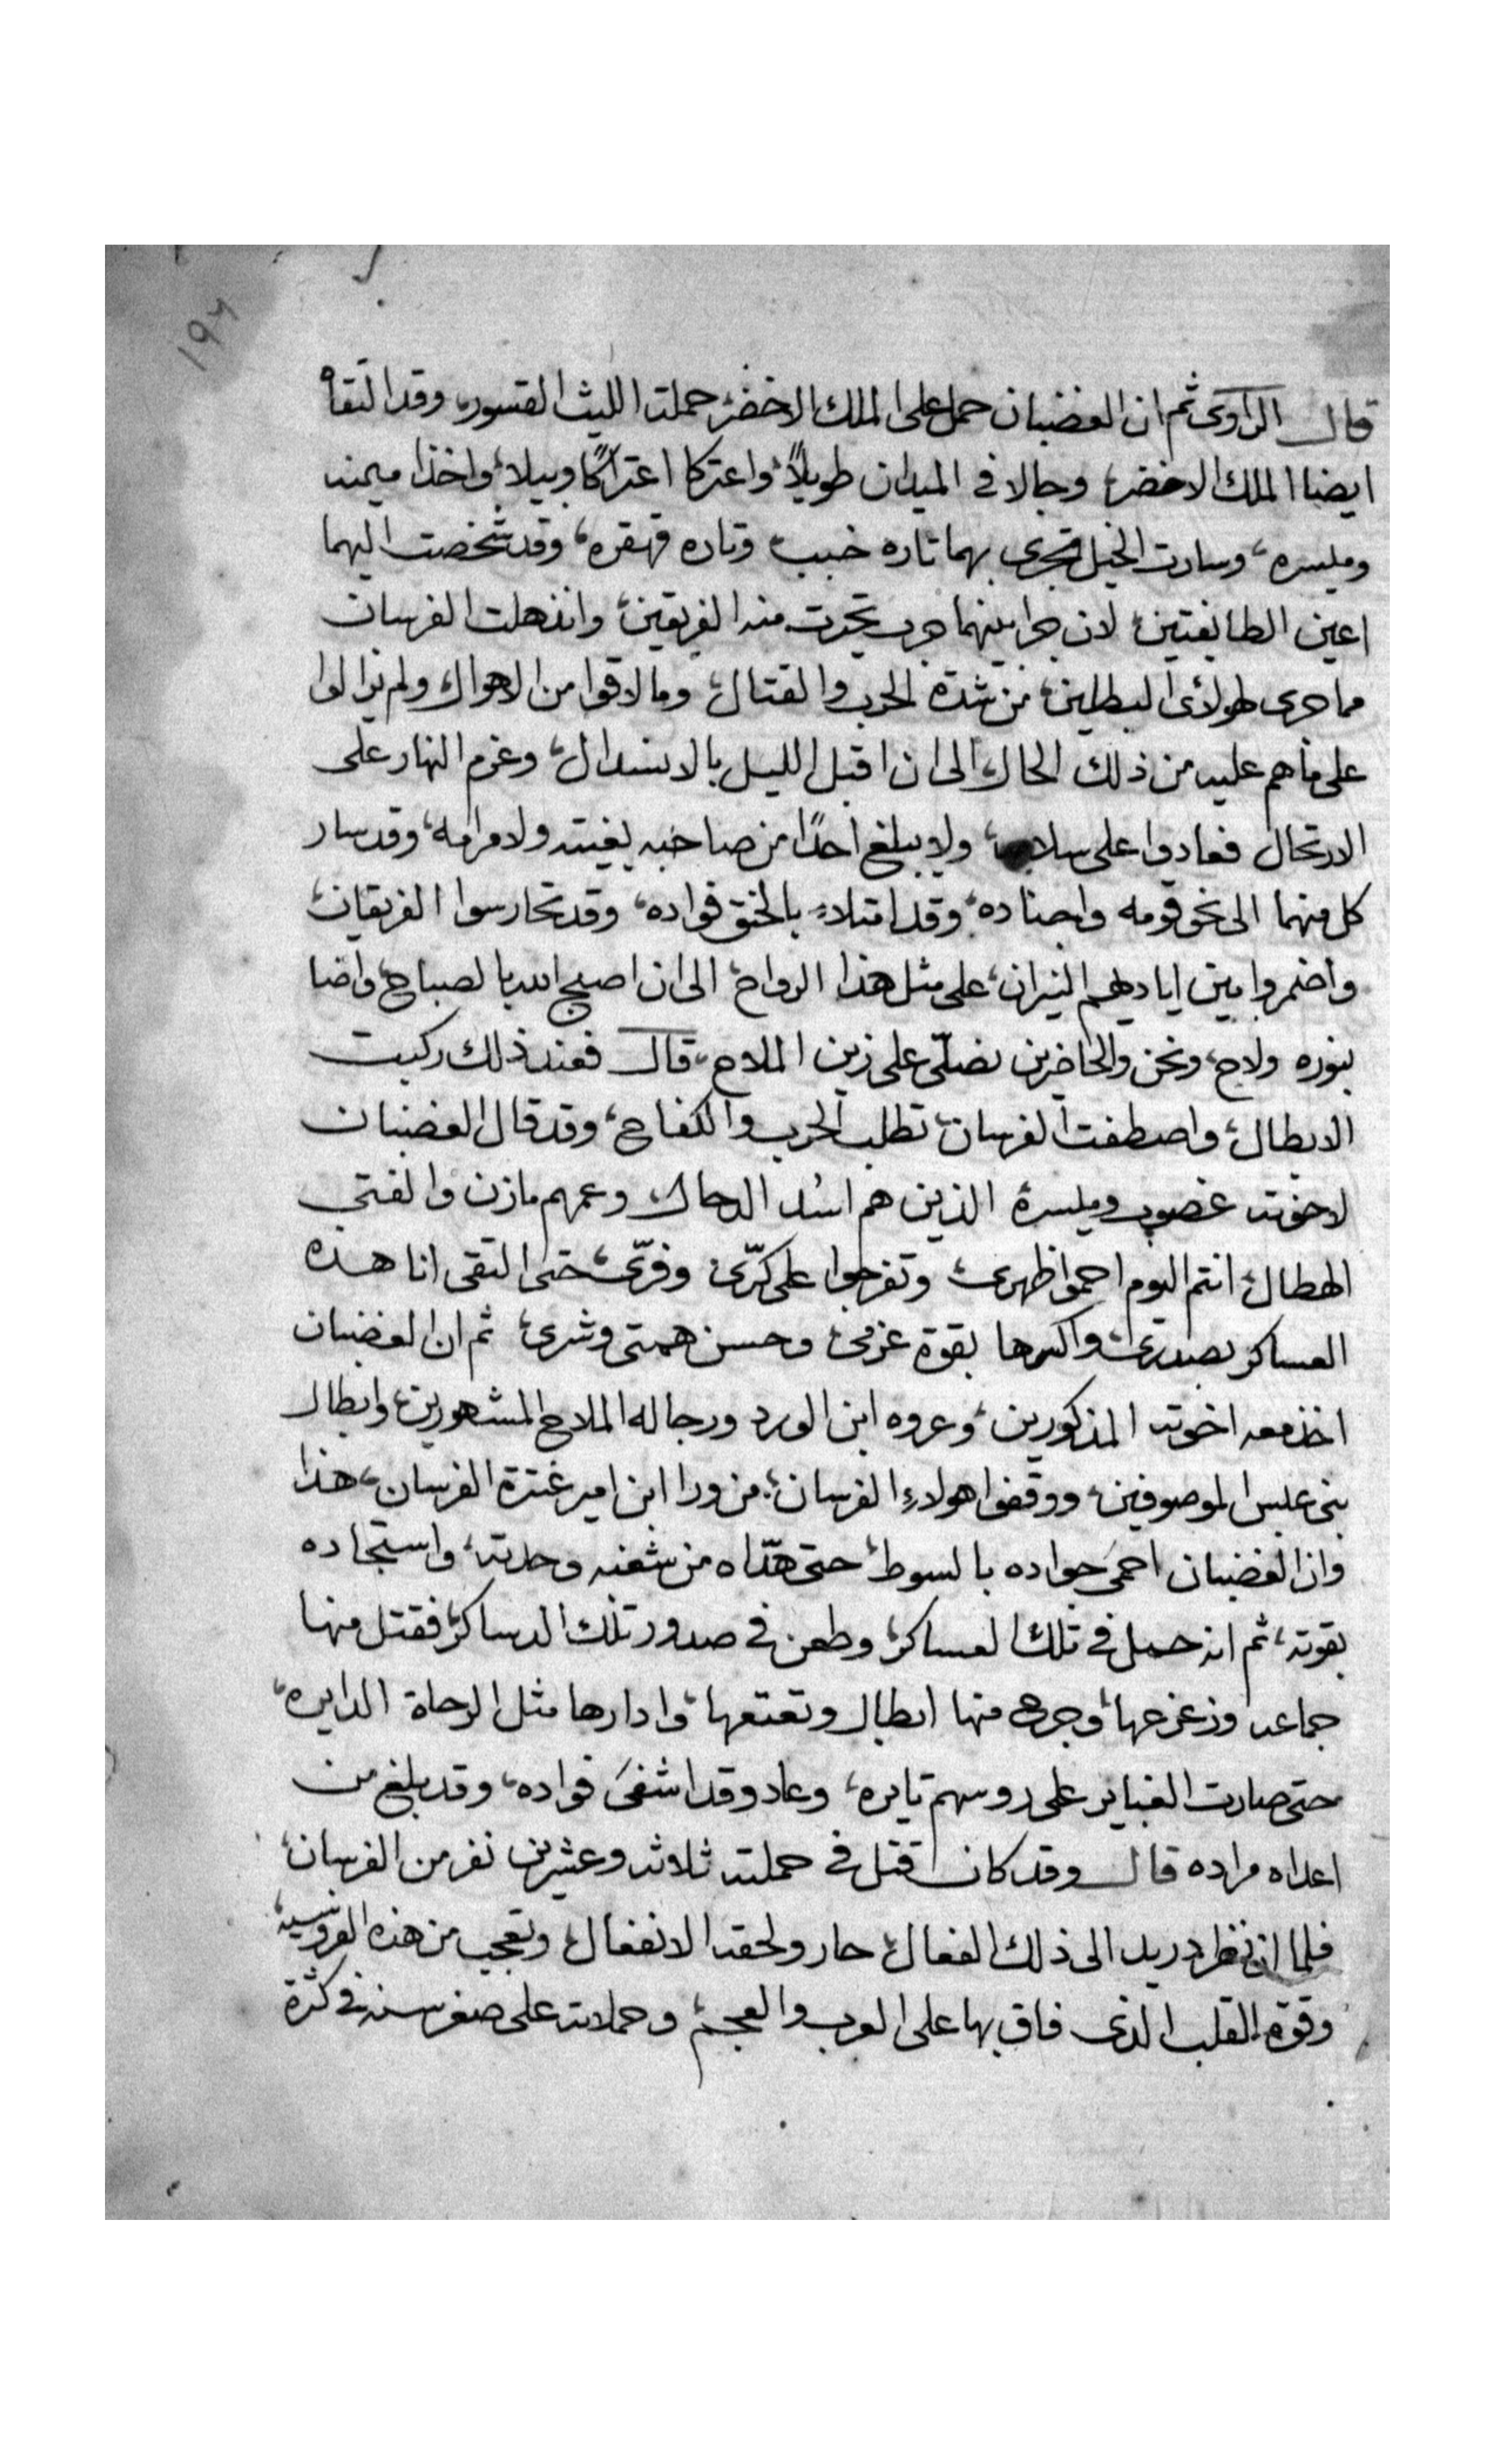 ١٩٢
قال الراوى ثم ان الغضبان حمل على الملك الاخضر، حملت الليث القسور، وقد التقاه
ايضا الملك الاخضر، وجالا فى الميدان طويلاً، واعتركا اعتراكًا وبيلا، واخذا ميمنه
وميسره، وسارت الخيل تجرى بهما تاره خبب وتاره قهقره، وقد شخصت اليهما
اعين الطايفتين، لان جرا بينهما حرب تحيرت منه الفريقين، وانذهلت الفرسان
مما جرى لهولأى البطلين، من شدة الحرب والقتال، وما لاقوا من الاهوال، ولم يزالوا
على ما هم عليه من ذلك الحال، الى ان اقبل الليل بالانسدال، وعزم النهار على
الارتحال فعادوا على ولا يبلغ احدًا من صاحبه بغيته ولا مرامه، وقد سار
كل منهما الى نحو قومه واجناده، وقد امتلاء بالحنق فواده، وقد تحارسوا الفريقان،
واضمروا بين اياديهم النيران، على مثل هذا الرواح، الى ان اصبح الله بالصباح، واضا
بنوره ولاح، ونحن والحاضرين نصلّى على زين الملاح، قال فعند ذلك ركبت
الابطال، واصطفت الفرسان، تطلب الحرب والكفاح، وقد قال الغضبان
لاخوته غصوب وميسرة الذين هم اسُد الدحال، وعمهم مازن والفتى
الهطال، انتم اليوم احموا ظهرى، وتفرجوا على كرّى وفرّى، حتى التقى انا هذه
العساكر بصدرى، واكسرها بقوة عزمى، وحسن همتى وشرى، ثم ان الغضبان
اخذ معه اخوته المذكورين، وعروه ابن الورد ورجاله الملاح المشهورين، وابطال
بنى عبس الموصوفين، ووقفوا هولاءِ الفرسان، من ورا ابن امير عنترة الفرسان، هذا
وان الغضبان احمى جواده بالسوط، حتى هدّاه من شغبه وحدته، واستجاده
بقوته، ثم انه حمل فى تلك العساكر، وطعن فى صدور تلك الدساكر، فقتل منها
جماعه وزعزعها، وجرح منها ابطال وتعتعها، وادارها مثل الرحاة الدايره،
حتى صارت الغباير على روسهم تايره، وعاد وقد اشفى فواده، وقد بلغ من
اعداه مراده قال وقد كان قتل فى حملته ثلاثه وعشرين نفر من الفرسان،
فلما ان نظر دريد الى ذلك الفعال، حار ولحقه الانفعال، وتعجب من هذه الفروسيه،
وقوة القلب الذى فاق بها على العرب والعجم، وحملاته على صغر سنه فى كثرة